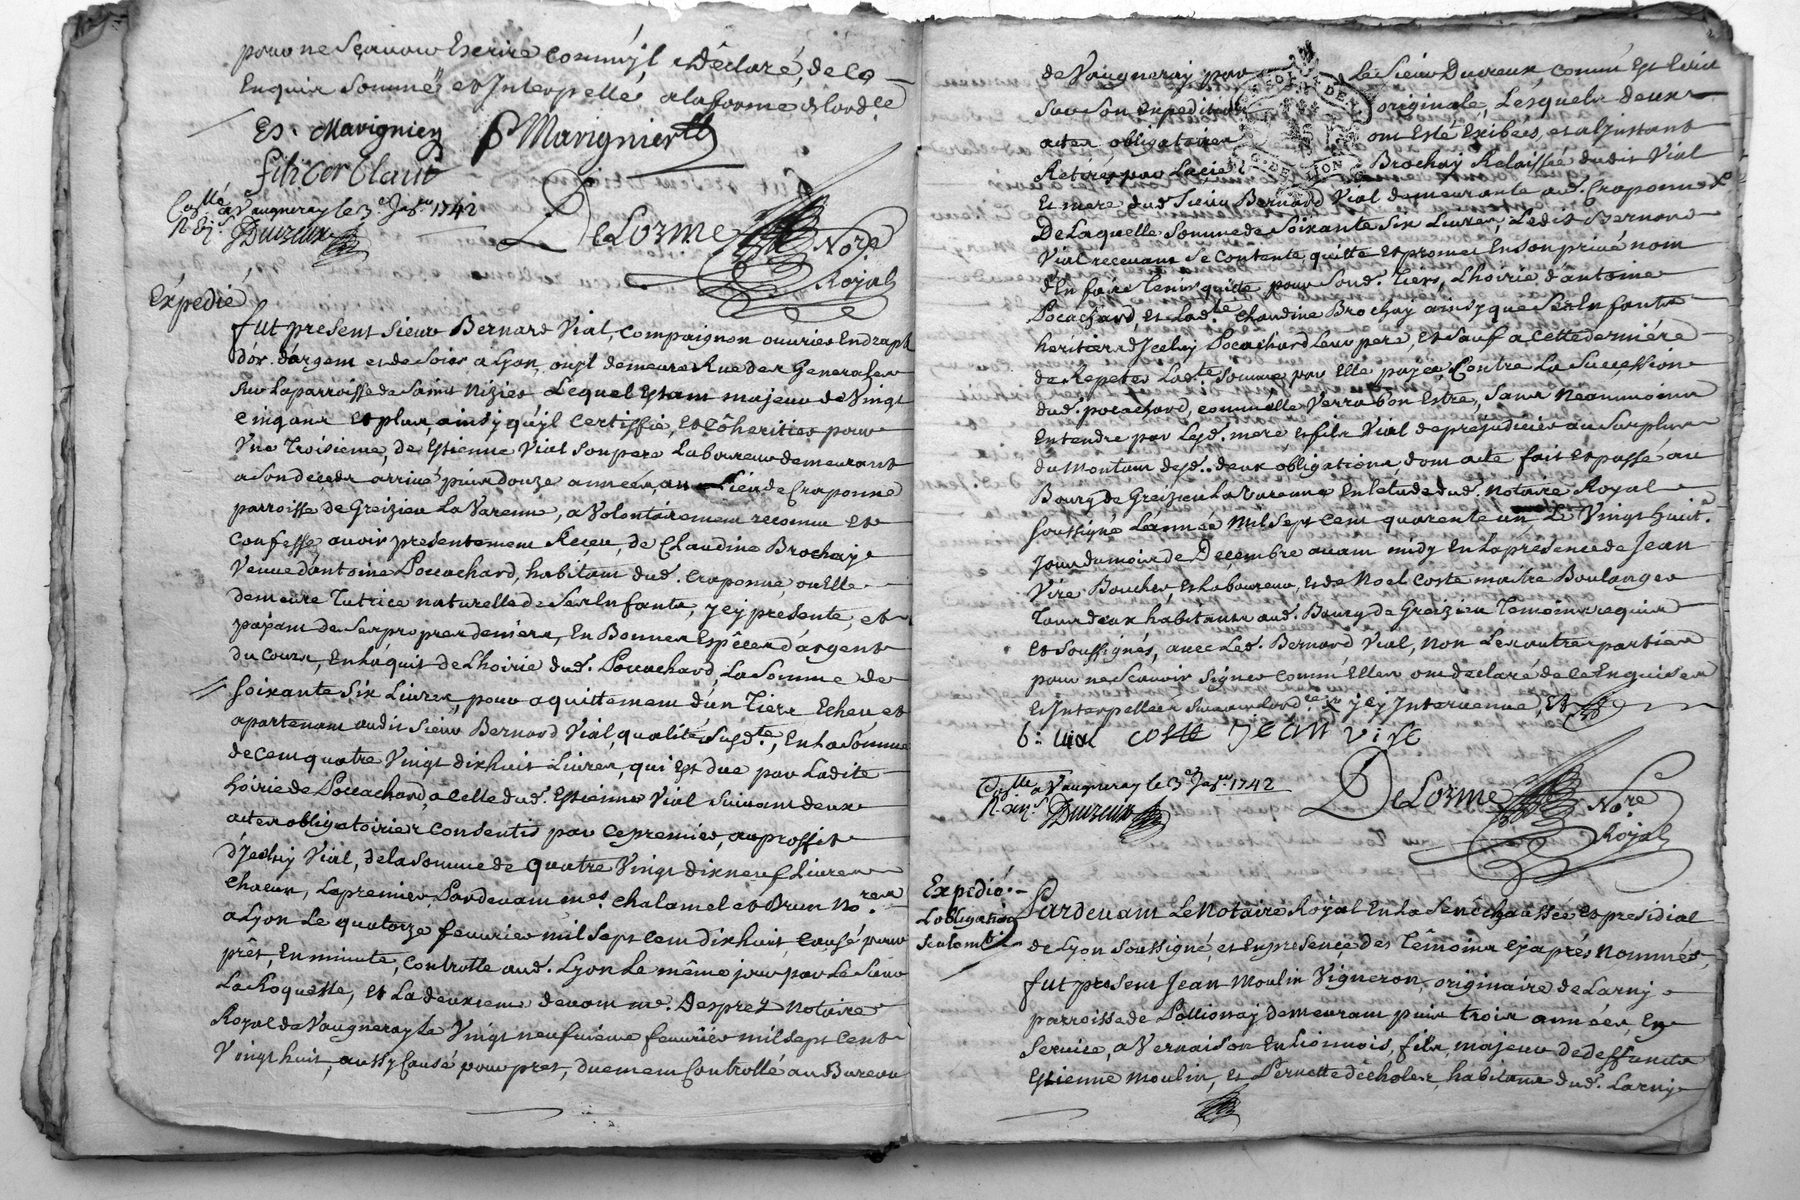 pour ne sçavoir Escrire comm'jl, a Déclaré, de ce
Enquis sommé, et Interpellé, a la forme de lord.ce
Es. Mavignier P Mavignier
Collé a Vaugneray le 3.e Ja.er 1742
Duireux
DeLorme No.re
Royal
Expedié
fut present sieur Bernard Vial, compaignon ouvrier En draps
d'or d'argent et de Soies a Lyon, ou jl demeure Rue des Generales
sur La parroisse de Saint Nizier Lequel Estant majeur de Vingt
cinq ans et plus, ainsy qu'yl Certiffie, Et côheritier pour
Une Troisieme, de Estienne Vial Son pere Laboureur demeurant
a Son décéds arrivé puis douze années, au Lieu de Craponne
parroisse de Greizieu La Varenne, a Volontairement reconnu et
confessé avoir presentement Receu, de Claudine Brochay
Veuve d'antoine Pocachard, habitant dud. Craponne, ou Elle
demeure Tutrice naturelle de Ses Enfants, jcy presente, et
payant de Ses propres deniers, En Bonnes Espêces d'argent
du cours, En L'aquit de L'hoirie dud. Pocachard, La Somme de
Soixante Six Livres, pour aquittement d'un Tiers Echeu et
apartenant audit Sieur Bernard Vial, qualité Susd.te, En La Sômme
de cent quatre Vingt dix huit Livres, qui Est due par Ladite
hoirie de Pocachard, a celle dud. Estienne Vial Suivant deux
actes obligatoires Consentis par ce premier, au proffit
d'Jceluy Vial, de la Somme de quatre Vingt dix neuf Livres
chacun, Le premier Pardevant m.es Chalamel et Brun No.res
a Lyon Le quatorze feuvrier mil Sept Cent dix huit, Causé pour
prêt, En minute, Controllé aud. Lyon Le même jour par Le Sieur
La Roquette, et La deuxieme devant m.e Desprez Notaire
Royal de Vaugneray Le Vingt neufvieme feuvrier mil Sept Cent
Vingt huit, aussy Causé pour pret, duement Controllé au Bureau
de Vaugneray par Le Sieur Duireux, comm' Est Ecrit
Sur Son Expedition originale, Lesquels deux
actes obligatoires ont Esté Exibées, et a L'jnstant
Retirés par Brochay Relaissée dudit Vial
Et mere dud. Sieur Bernard Vial demeurante aud. Craponne
De Laquelle Somme de Soixante Six Livres, Ledit Bernard
Vial recevant Se Contente, quitte Et promet En son privé nom
d'En faire Tenir quitte pour Sond. Tiers, L'hoirie d'antoine
Pocachard, Et Lad.te Claudine Brochay ainsy que Ses Enfants
heritiers d'Jceluy Pocachard Leur pere, Et Sauf a Cette derniére
de Repeter Lad.te Somme par Elle payée, Contre La Succession
dud. pocachard, comm'elle Verra bon Estre, Sans Neanmoins
Entendre par Lesd. mere et fils Vial de prejudicier au Surplus
du Montant desd. deux obligations, dont acte fait Et passé au
Bourg de Greizieu La Varenne En L'etude dud. Notaire Royal
Soussigné L'année Mil Sept Cent quarente un Le Vingt huit.
Jour du mois de Décembre avant midy En La présence de Jean
Vire Boucher, Et Laboureur, et de Noel Coste maitre Boulanger
Tous deux habitants aud. Bourg de Greizieu Temoins requis
Et Soussignés, avec Led. Bernard Vial, Non Les autres parties
pour ne Scavoir Signer comm' Elles ont declaré de ce Enquises
Et Interpellées Suivant Lord.ce jcy Intervenue, Et
b: uial coste jean vire
Collé a Vaugneray le 3.e Ja.er 1742
Duireux
DeLorme No.re
Royal
Expedié
L'obligation
Pardevant Le Notaire Royal En La Senêchaussée Et presidial
de Lyon Soussigné, et En presençe des Têmoins cy aprés Nommés,
fut present Jean Moulin Vigneron originaire de Larny
parroisse de Pollionay demeurant puis trois années, En
Service, a Vernaison En Lionnois, fils majeur de deffuncts
Estienne Moulin, Et Pernette décholet, habitans dud. Larny